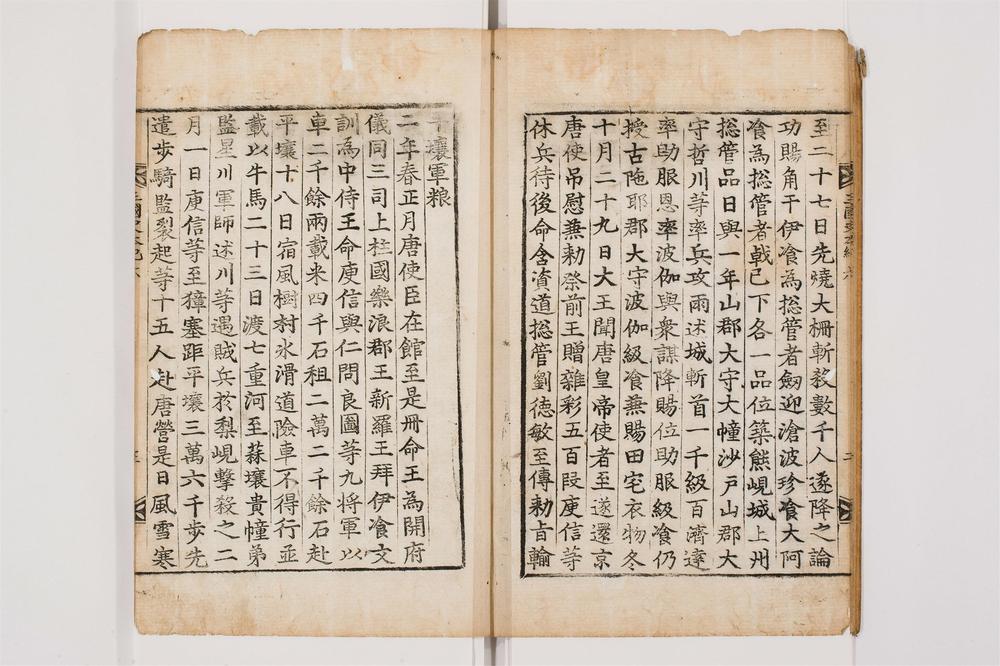 至二十七日先燒大柵斬殺數千人遂降之論
功賜角干伊飡爲捴管者劒迊湌波珍飡大阿
飡爲捴管者戟已下各一品位築熊峴城上州
捴管品日與一牟山郡大守大幢沙尸山郡大
守哲川等率兵攻雨述城斬首一千級百濟達
率助服恩率波伽與衆謀降賜位助服級飡仍
授古陁耶郡大守波伽級飡兼賜田宅衣物冬
十月二十九日大王聞唐皇帝使者至遂還京
唐使吊慰兼勑祭前王贈雜彩五百段庾信等
休兵待後命含資道捴管劉德敏至傳勑旨輸
平壤軍粮
二年春正月唐使臣在館至是冊命王爲開府
儀同三司上柱國樂浪郡王新羅王拜伊飡文
訓爲中侍王命庾信與仁問良圖等九將軍以
車二千餘兩載米四千石租二萬二千餘石赴
平壤十八日宿風樹村氷滑道險車不得行並
載以牛馬二十三日渡七重河至䔉壤貴幢弟
監星川軍師述川等遇賊兵於梨峴擊殺之二
月一日庾信等至獐塞距平壤三萬六千步先
遣步騎監裂起等十五人赴唐營是日風雪寒